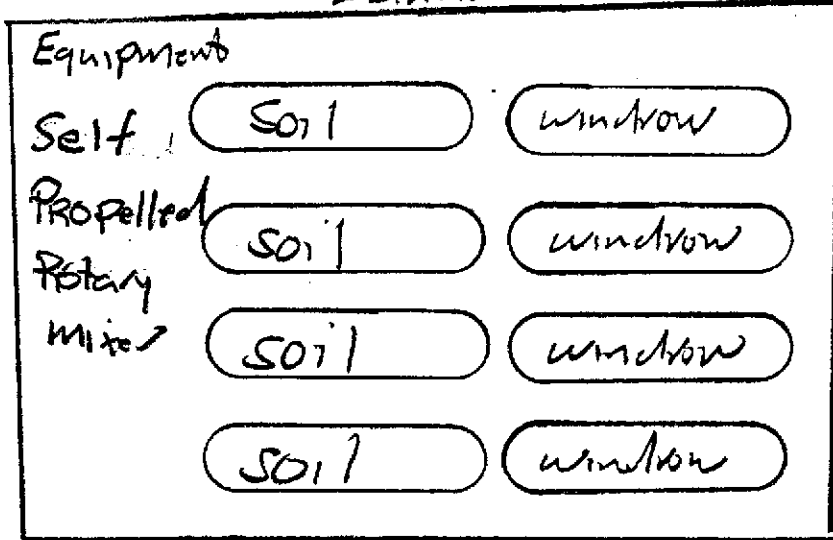 Equipment
Self
Propelled
Rotary
mixer
Soil windrow
Soil windrow
Soil windrow
Soil windrow